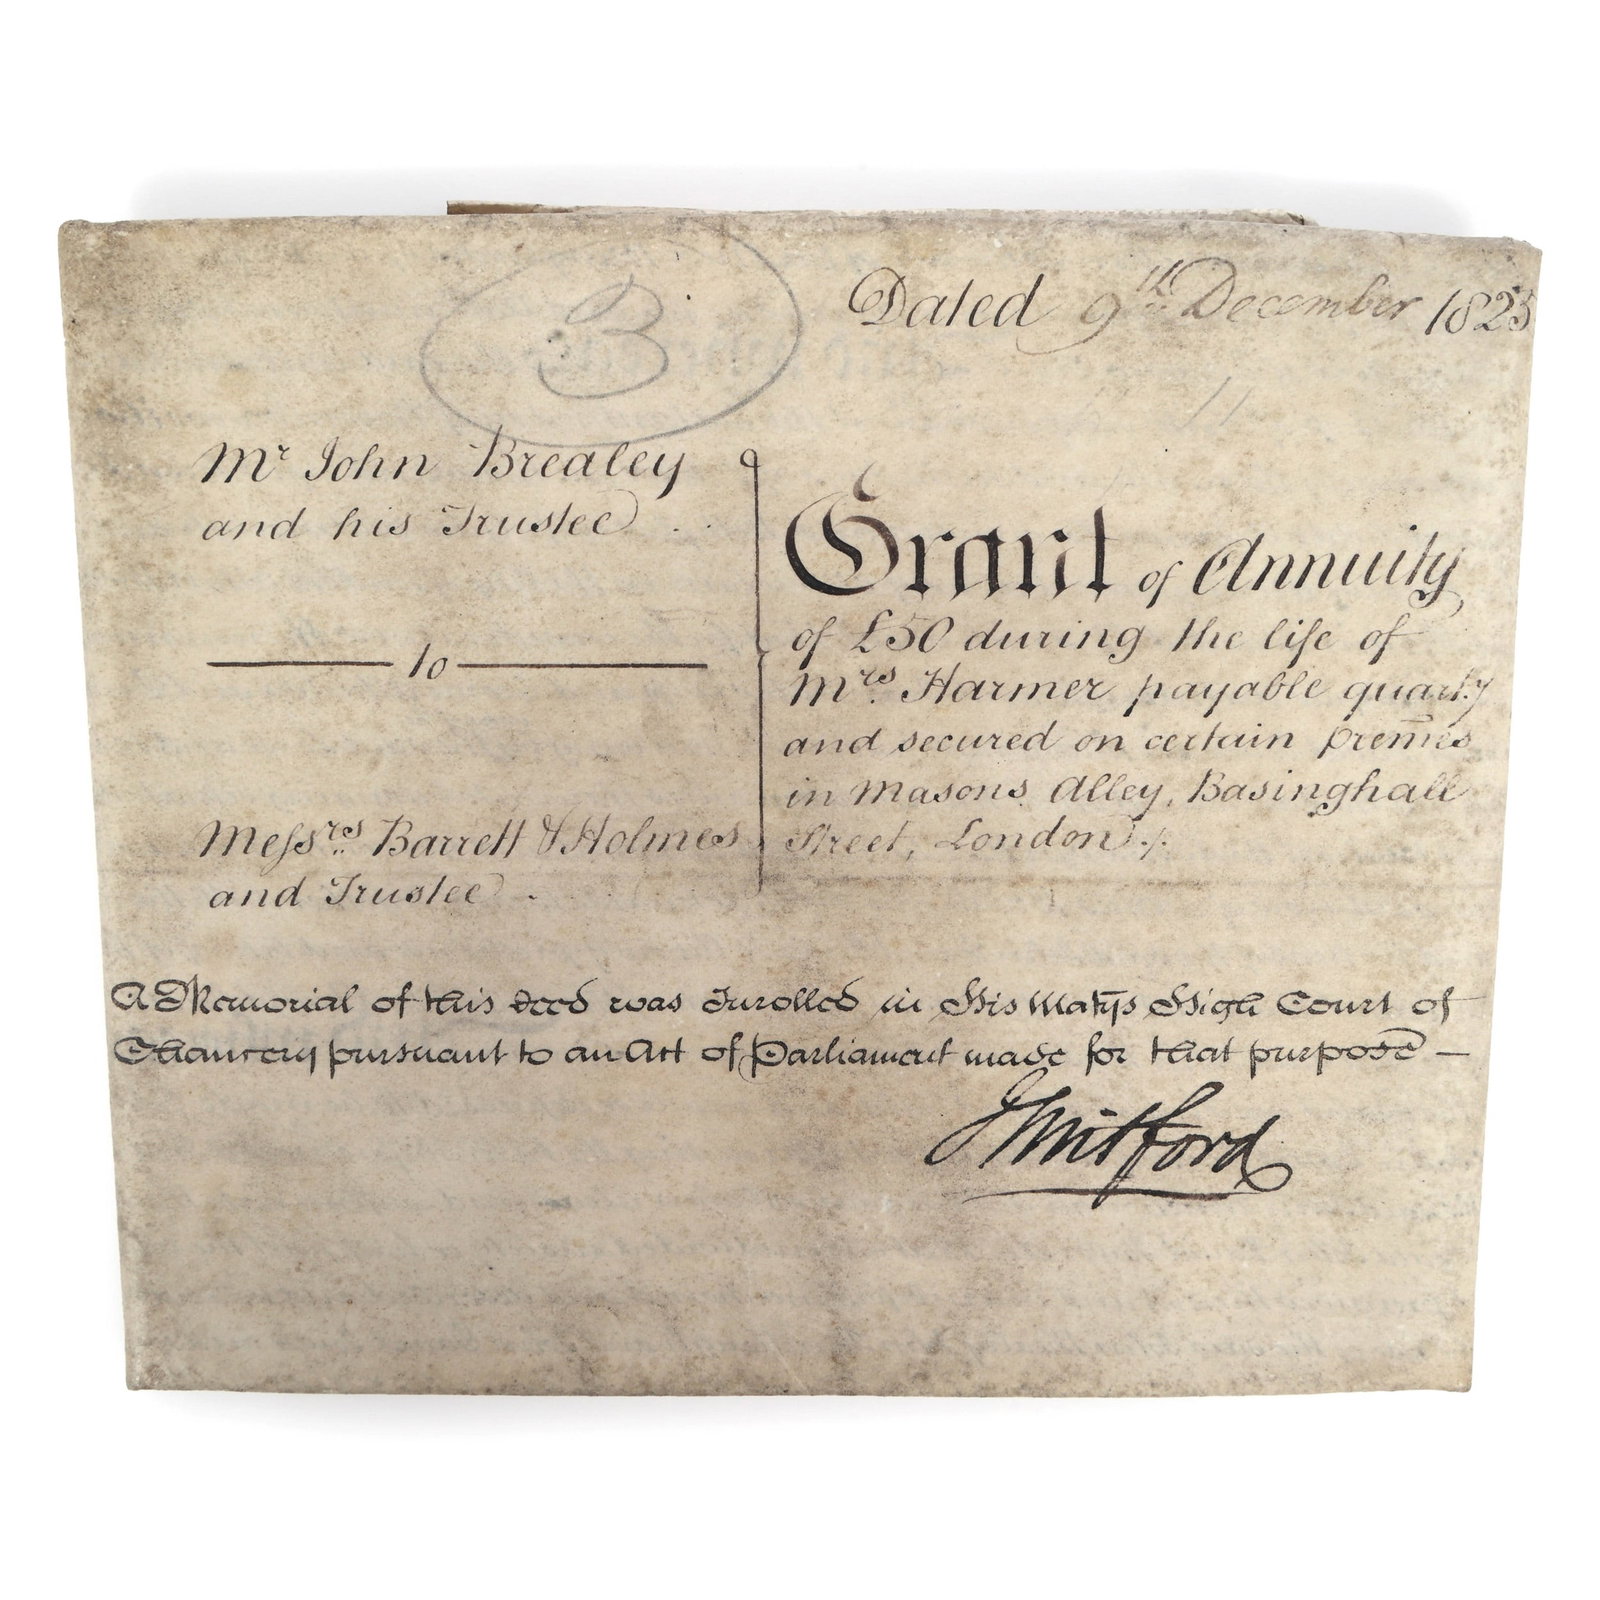 B
Dated 9th December 1825
Mr John Brealey
and his Trustee
to
Messrs Barrett & Holmes
and Trustee
Grant of Annuity
of £50 during the life of
Mrs. Harmer payable quartly
and secured on certain premes
in Masons Alley, Basinghall
Street, London
A Memorial of this deed was Inrolled in His Matys High Court of
Chancery pursuant to an Act of Parliament made for that purpose —
J Mitford